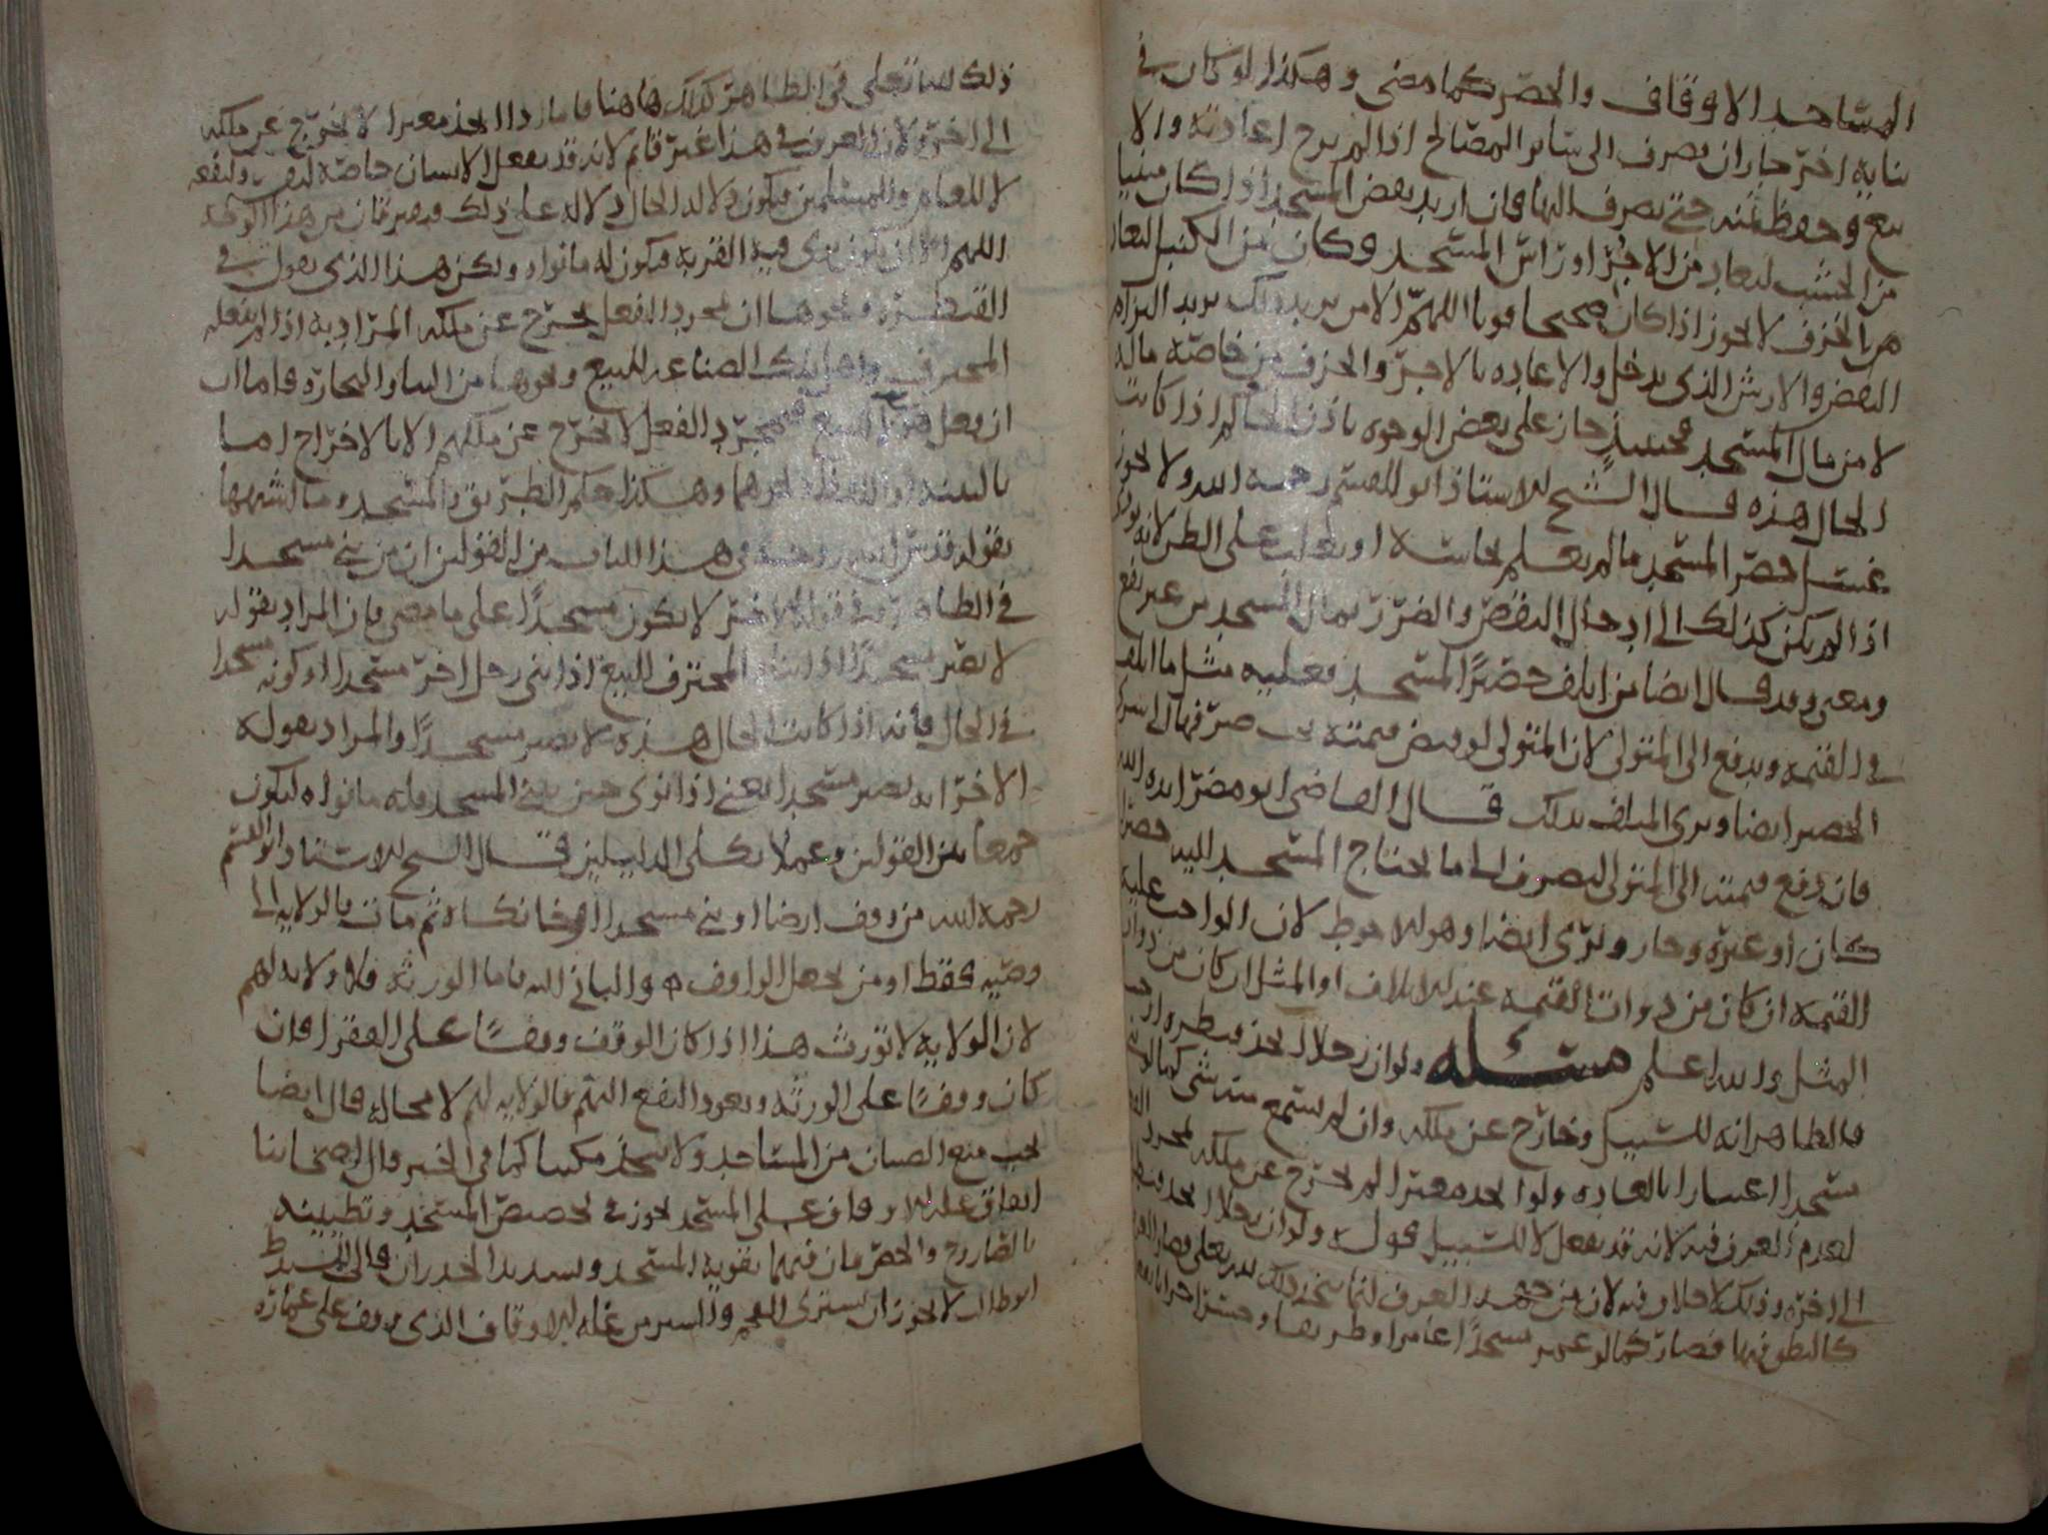 المساجد الاوقاف والحصر كما مضى وهكذا لو كان في
بنايه اخر جاز ان يصرف الى سائر المصالح اذا لم يرج اعادته والا
بيع وحفظ ثمنه حتى يصرف اليها فان اريد نقض المسجد اذا كان مبنيا
من الخشب ليعاد من الاجر او راس المسجد وكان من الكنبل ليعاد
من الخزف لا يجوز اذا كان صحيحا قويا اللهم الا من يريد ذلك يريد البراه
النقض والارش الذي يدخل والاعاده بالاجر والخزف من خاصه ماله
لا من مال المسجد فحينئذ جاز على بعض الوجوه باذن الحاكم اذا كانت
الحال هذه قال الشيخ الاستاذ ابو القسم رحمه الله ولا يجوز
غسل حصر المسجد ما لم يعلم نجاسته او يغلب على الظن لانه يودي
اذا لم يكن كذلك الى ادخال النقض والضرر بمال المسجد من غير نفع
ومعنى وقد قال ايضا من اتلف حصير المسجد فعليه مثل ما اتلف
في القيمه ويدفع الى المتولي لان المتولي لو قبض قيمته صرفها الى شرى
الحصير ايضا ويبرى المتلف بذلك قال القاضي ابو مضر ايده الله
فان دفع قيمته الى المتولي ليصرف الى ما يحتاج المسجد اليه حصيرا
كان او غيره وجاز وبرى ايضا وهو الاحوط لان الواجب عليه
القيمه ان كان من ذوات القيمه عند الاتلاف او المثل ان كان من ذوات
المثل والله اعلم مسئله ولو ان رجلا اتخذ قنطره او
فالظاهر انه للسبيل وخارج عن ملكه وان لم يسمع منه شي كما لو بنى
مسجدا اعتبارا بالعاده ولو اتخذ معبرا لم يخرج عن ملكه بمجرد
لعدم العرف فيه لانه قد يفعل لا للسبيل ولو ان رجلا اتخذ
الى اخره وذلك لا خلاف فيه لان من جهه العرف انما يتخذ ذلك لله تعالى فصار
كالنطق فيها فصار كما لو عمر مسجدا عامرا وطريقا
ذلك لله تعالى في الظاهر كذلك هاهنا فاما اذا اتخذ معبرا لا يخرج عن ملكه
الى اخره لان العرف في هذا غير قائم لانه قد يفعل الانسان خاصه لنفسه ولنفعه
لا للعامه وللمسلمين فيكون دلاله الحال دلاله على ذلك من هذا الوجه
اللهم الا ان يكون نوى فيه القربه فيكون له ما نواه ولكن هذا الذي يقول في
القنطره ونحوها ان بمجرد الفعل يخرج عن ملكه المراد به اذا لم يفعله
المحترف واهل تلك الصناعه للبيع ونحوها من البنا والتجاره فاما ان
ان يفعل للبيع فبمجرد الفعل لا يخرج عن ملكهم الا بالاخراج اما
بالنيه او اللفظ او هما وهكذا حكم الطريق والمسجد وما اشبهها
بقوله قدس الله روحه في هذا الباب من القولين ان من بنى مسجدا
في الظاهر في قوله الاخر لا يكون مسجدا على ما مضى فان المراد بقوله
لا يصير مسجدا اذا بناه المحترف للبيع اذا بنى رجل اخر مسجدا او كونه مسجدا
في الحال فانه اذا كانت الحال هذه لا يصير مسجدا والمراد بقوله
الاخر انه يصير مسجدا يعني اذا نوى حين بنى المسجد وله ما نواه ليكون
جمعا بين القولين وعملا بكلى الدليلين قال الشيخ الاستاذ ابو القسم
رحمه الله من وقف ارضا او بنى مسجدا او خانكاه ثم مات فالولايه الى
وصيه فقط او من يجعل الواقف والباني اليه فاما الورثه فلا ولايه لهم
لان الولايه لا تورث هذا اذا كان الوقف وقفا على الفقرا فان
كان وقفا على الورثه ويعود النفع اليهم فالولايه لهم لا محاله قال ايضا
يجب منع الصبيان من المساجد ولا يتخذ مكتبا كما في الخبر قال اصحابنا
انفاق غله الاوقاف على المسجد يجوز في تجصيص المسجد وتطيينه
بالصاروج والحصر فان فيهما تقويه المسجد وتسديد الجدران قال السيد
ابو طالب لا يجوز ان يشترى من غله الاوقاف الذي وقف على عماره